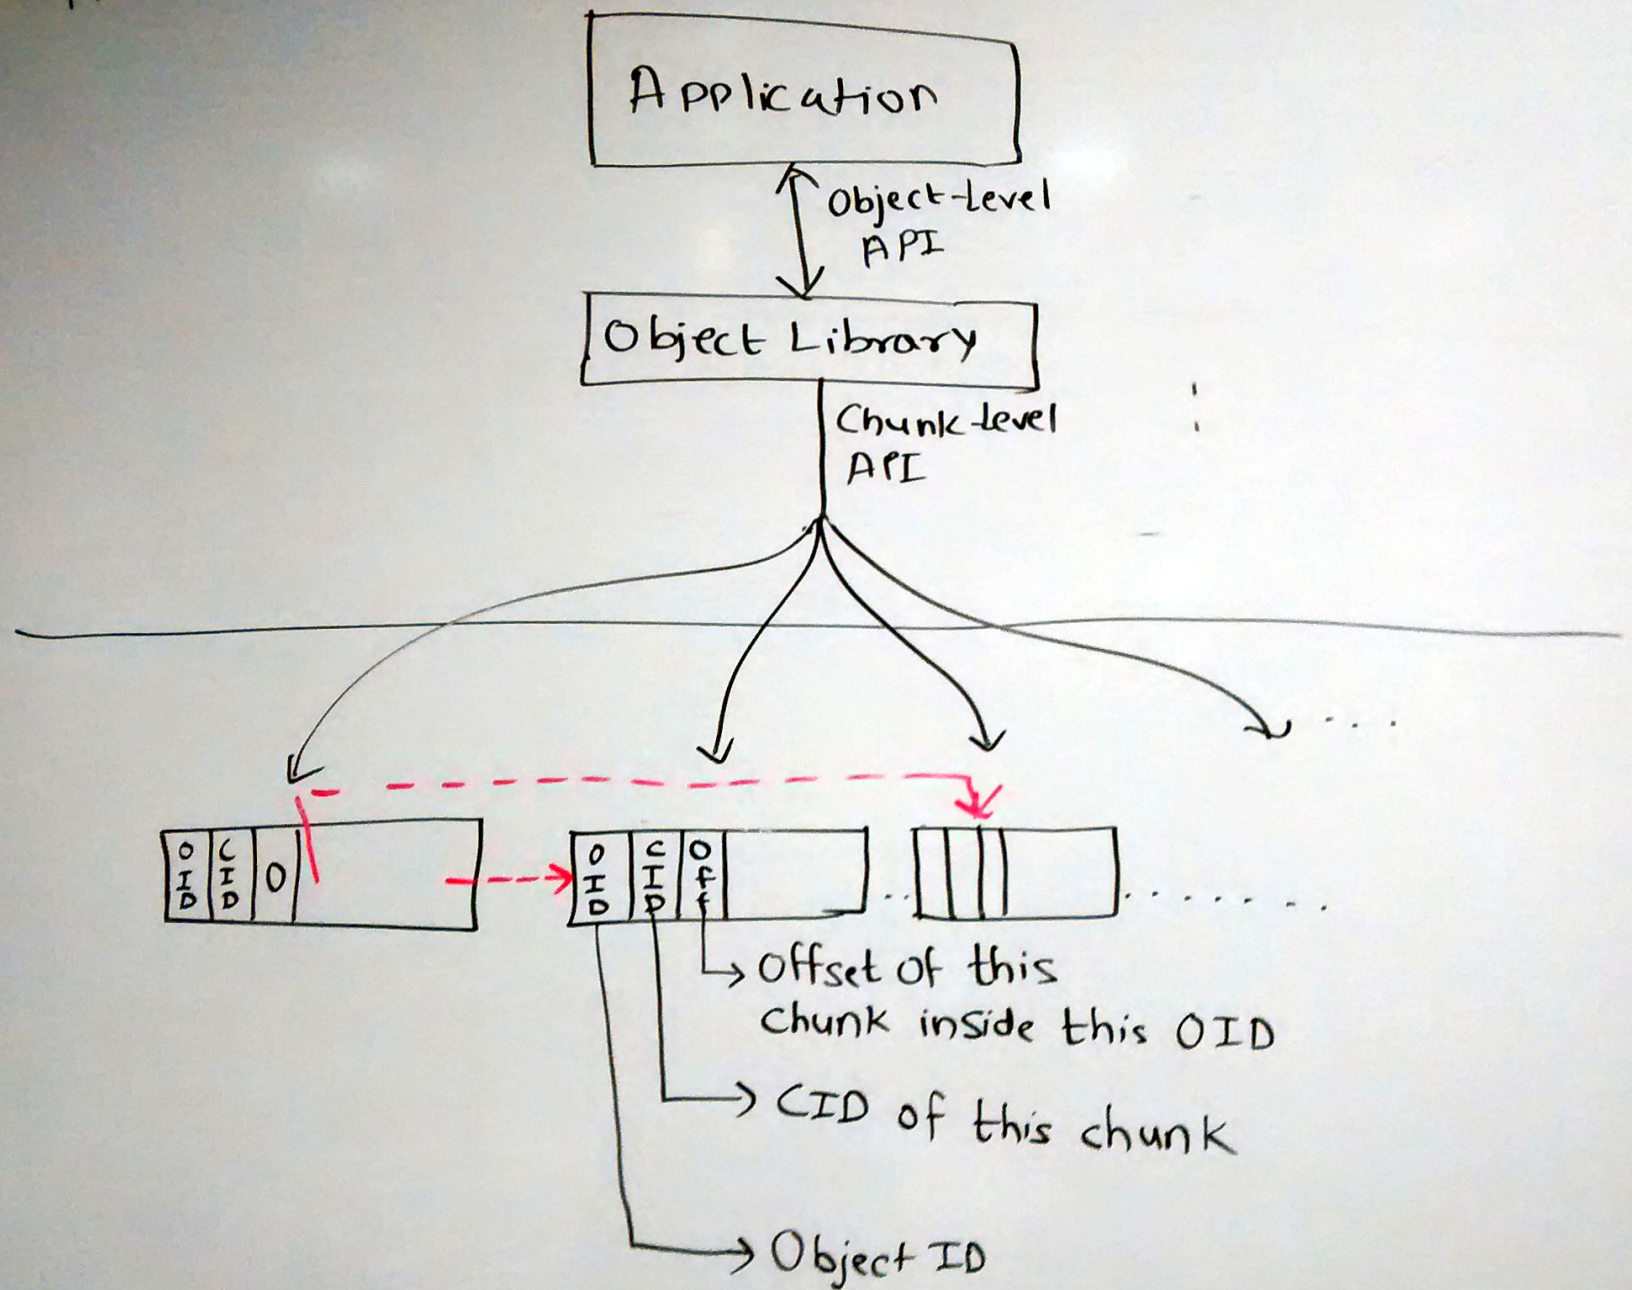 Application
Object-Level
API
Object Library
Chunk-Level
API
....
OID
CID
O
OID
CID
Off
..
........
Offset of this
chunk inside this OID
CID of this chunk
Object ID